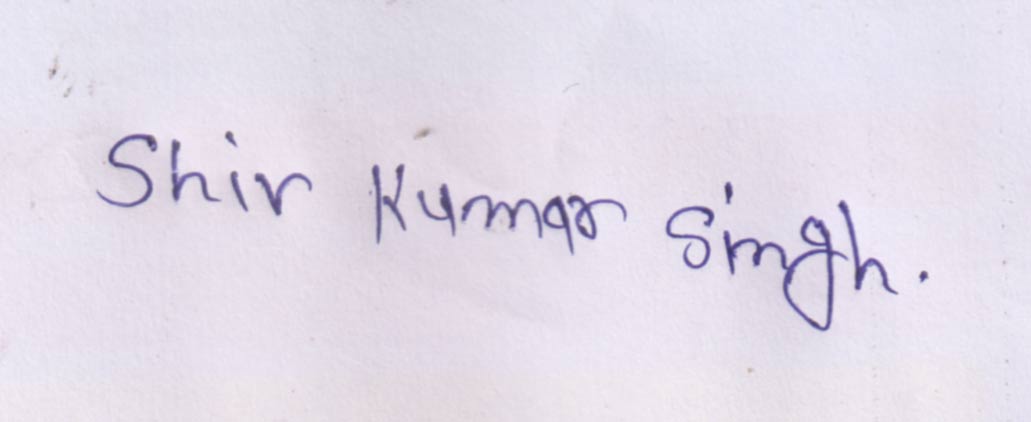 Shiv Kumar Singh.